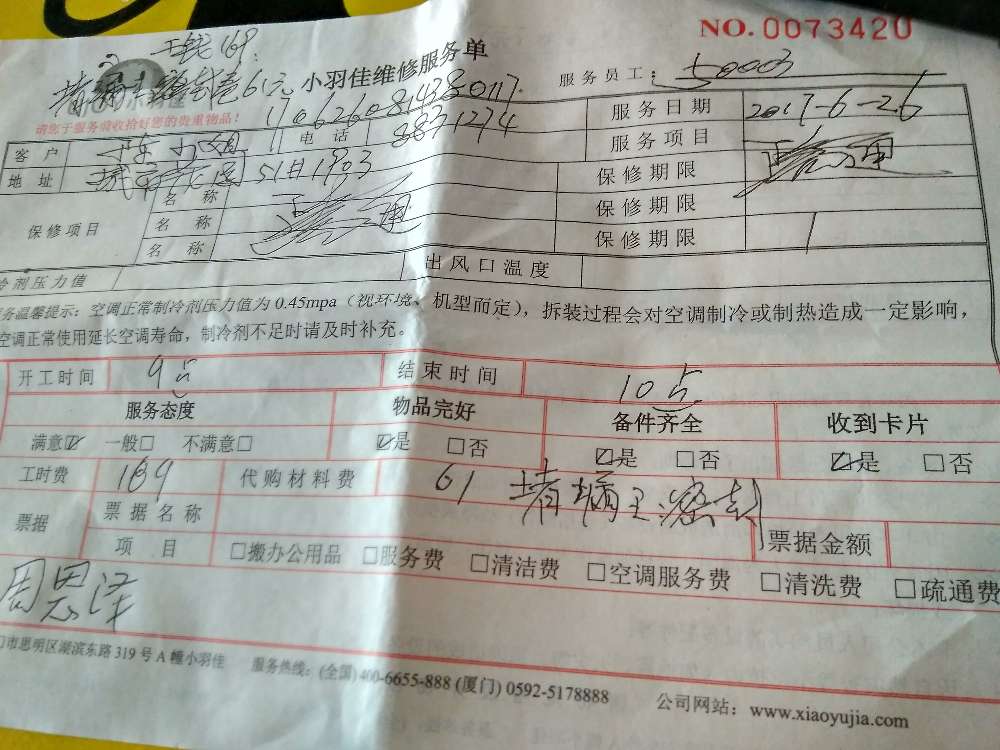 NO. 0073420
小羽佳维修服务单
服务员工: 50003
请您于服务前收拾好您的贵重物品!
170626084380117
客户 小姐 电话 8871274 服务日期 2017-6-26
地址 1903 服务项目
保修项目 名称 保修期限
名称 保修期限
名称 保修期限
冷剂压力值 出风口温度
务温馨提示: 空调正常制冷剂压力值为 0.45mpa (视环境、机型而定), 拆装过程会对空调制冷或制热造成一定影响,
空调正常使用延长空调寿命, 制冷剂不足时请及时补充。
开工时间 9点 结束时间 10点
服务态度 物品完好 备件齐全 收到卡片
满意☑ 一般□ 不满意□ ☑是 □否 ☑是 □否 ☑是 □否
工时费 169 代购材料费 61 堵漏王
票据 票据名称 票据金额
项目 □搬办公用品 □服务费 □清洁费 □空调服务费 □清洗费 □疏通费
周思泽
门市思明区湖滨东路 319 号 A 幢小羽佳 服务热线: (全国) 400-6655-888 (厦门) 0592-5178888 公司网站: www.xiaoyujia.com